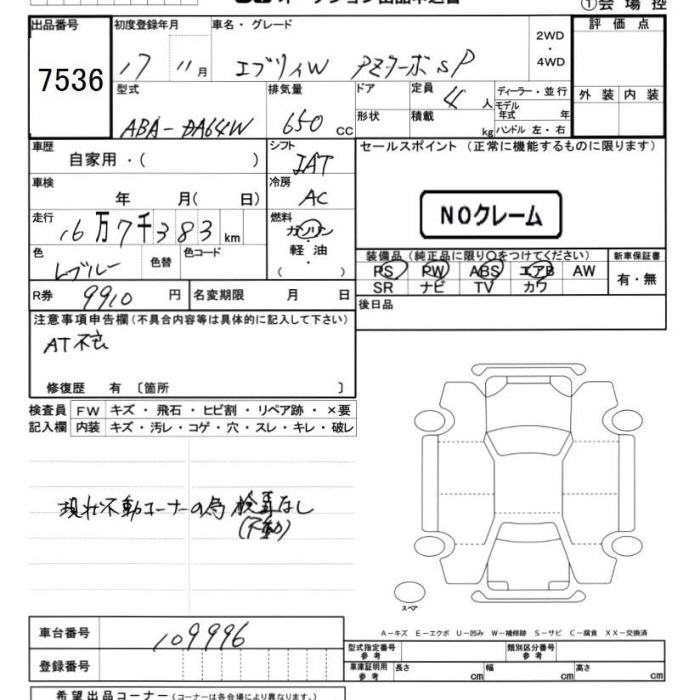 オークション出品申込書
①会場控
出品番号 初度登録年月 車名・グレード 2WD・4WD 評価点
7536
17 11月 エブリィW PZターボSP
型式 排気量 ドア 定員 4人 ディーラー・並行 外装 内装
ABA-DA64W 650cc 形状 積載 kg モデル年式 年
ハンドル 左・右
車歴 自家用・( ) シフト IAT セールスポイント (正常に機能するものに限ります)
車検 年 月( 日) 冷房 AC
NOクレーム
走行 16万7千383km 燃料 ガソリン 軽油 ( ・ )
色 Lブルー 色替 色コード
装備品(純正品に限り○をつけてください) 新車保証書
PS PW ABS エアB AW 有・無
SR ナビ TV カワ
R券 9910円 名変期限 月 日 後日品
注意事項申告欄(不具合内容等は具体的に記入して下さい)
AT不良
修復歴 有 〔箇所 〕
検査員 FW キズ・飛石・ヒビ割・リペア跡・×要
記入欄 内装 キズ・汚レ・コゲ・穴・スレ・キレ・破レ
現状不動コーナーの為 検査なし
(不動)
スペア
A-キズ E-エクボ U-凹み W-補修跡 S-サビ C-腐食 XX-交換済
車台番号 109996
型式指定番号 参考 類別区分番号 参考
登録番号 車庫証明用 参考 長さ cm 幅 cm 高さ cm
希望出品コーナー(コーナーは各会場により異なります。)